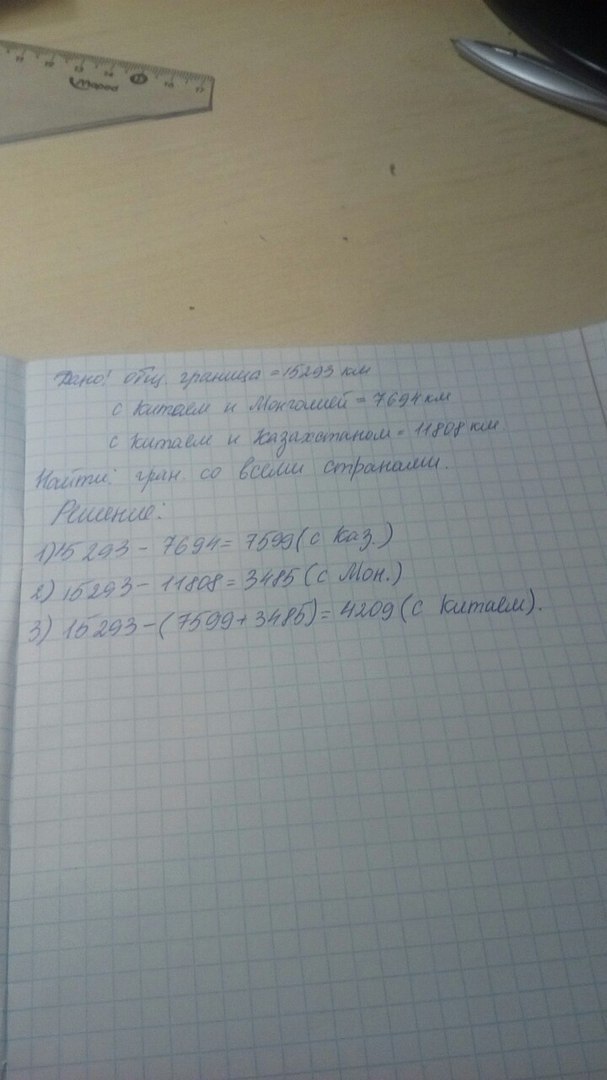 Дано: общ. граница = 15293 км
с Китаем и Монголией = 7694 км
с Китаем и Казахстаном = 11808 км.
Найти: гран. со всеми странами.
Решение:
1) 15293 - 7694 = 7599 (с Каз.)
2) 15293 - 11808 = 3485 (с Мон.)
3) 15293 - (7599 + 3485) = 4209 (с Китаем).